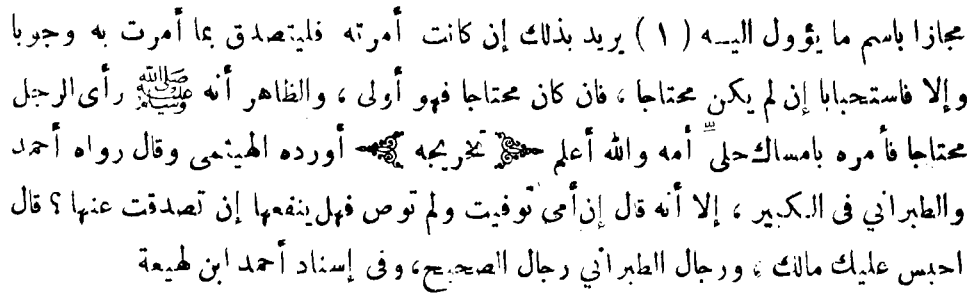 مجازا باسم ما يؤول اليه ( ١ ) يريد بذلك إن كانت أمرته فليتصدق بما أمرت به وجوبا
وإلا فاستحبابا إن لم يكن محتاجا ، فان كان محتاجا فهو أولى ، والظاهر أنه ﷺ رأى الرجل
محتاجا فأمره بامساك حلىّ أمه والله أعلم ﴿ تخريجه ﴾ أورده الهيثمى وقال رواه أحمد
والطبرانى فى الكبير ، إلا أنه قال إن أمى توفيت ولم توص فهل ينفعها إن تصدقت عنها ؟ قال
احبس عليك مالك ، ورجال الطبرانى رجال الصحيح، وفى إسناد أحمد ابن لهيعة